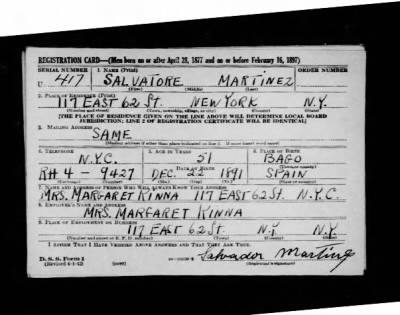 REGISTRATION CARD—(Men born on or after April 28, 1877 and on or before February 16, 1897)
SERIAL NUMBER 1. NAME (Print)
U 417 SALVATORE MARTINEZ
(First) (Middle) (Last)
2. PLACE OF RESIDENCE (Print)
117 EAST 62 St. NEW YORK N.Y.
(Number and street) (Town, township, village, or city) (County) (State)
[THE PLACE OF RESIDENCE GIVEN ON THE LINE ABOVE WILL DETERMINE LOCAL BOARD
JURISDICTION; LINE 2 OF REGISTRATION CERTIFICATE WILL BE IDENTICAL]
3. MAILING ADDRESS
SAME
[Mailing address if other than place indicated on line 2. If same insert word same]
4. TELEPHONE 5. AGE IN YEARS 6. PLACE OF BIRTH
N.Y.C. 51 BAGO
DATE OF BIRTH (Town or county)
RH 4 - 9427 DEC. 22 1891 SPAIN
(Exchange) (Number) (Mo.) (Day) (Yr.) (State or country)
7. NAME AND ADDRESS OF PERSON WHO WILL ALWAYS KNOW YOUR ADDRESS
MRS. MARGARET KINNA 117 EAST 62 St. N.Y.C.
8. EMPLOYER'S NAME AND ADDRESS
MRS. MARGARET KINNA
9. PLACE OF EMPLOYMENT OR BUSINESS
117 EAST 62 St. N.Y. N.Y.
(Number and street or R. F. D. number) (Town) (County) (State)
I AFFIRM THAT I HAVE VERIFIED ABOVE ANSWERS AND THAT THEY ARE TRUE.
D. S. S. Form 1
(Revised 4-1-42) (over)
Salvador Martinez
(Registrant's signature)